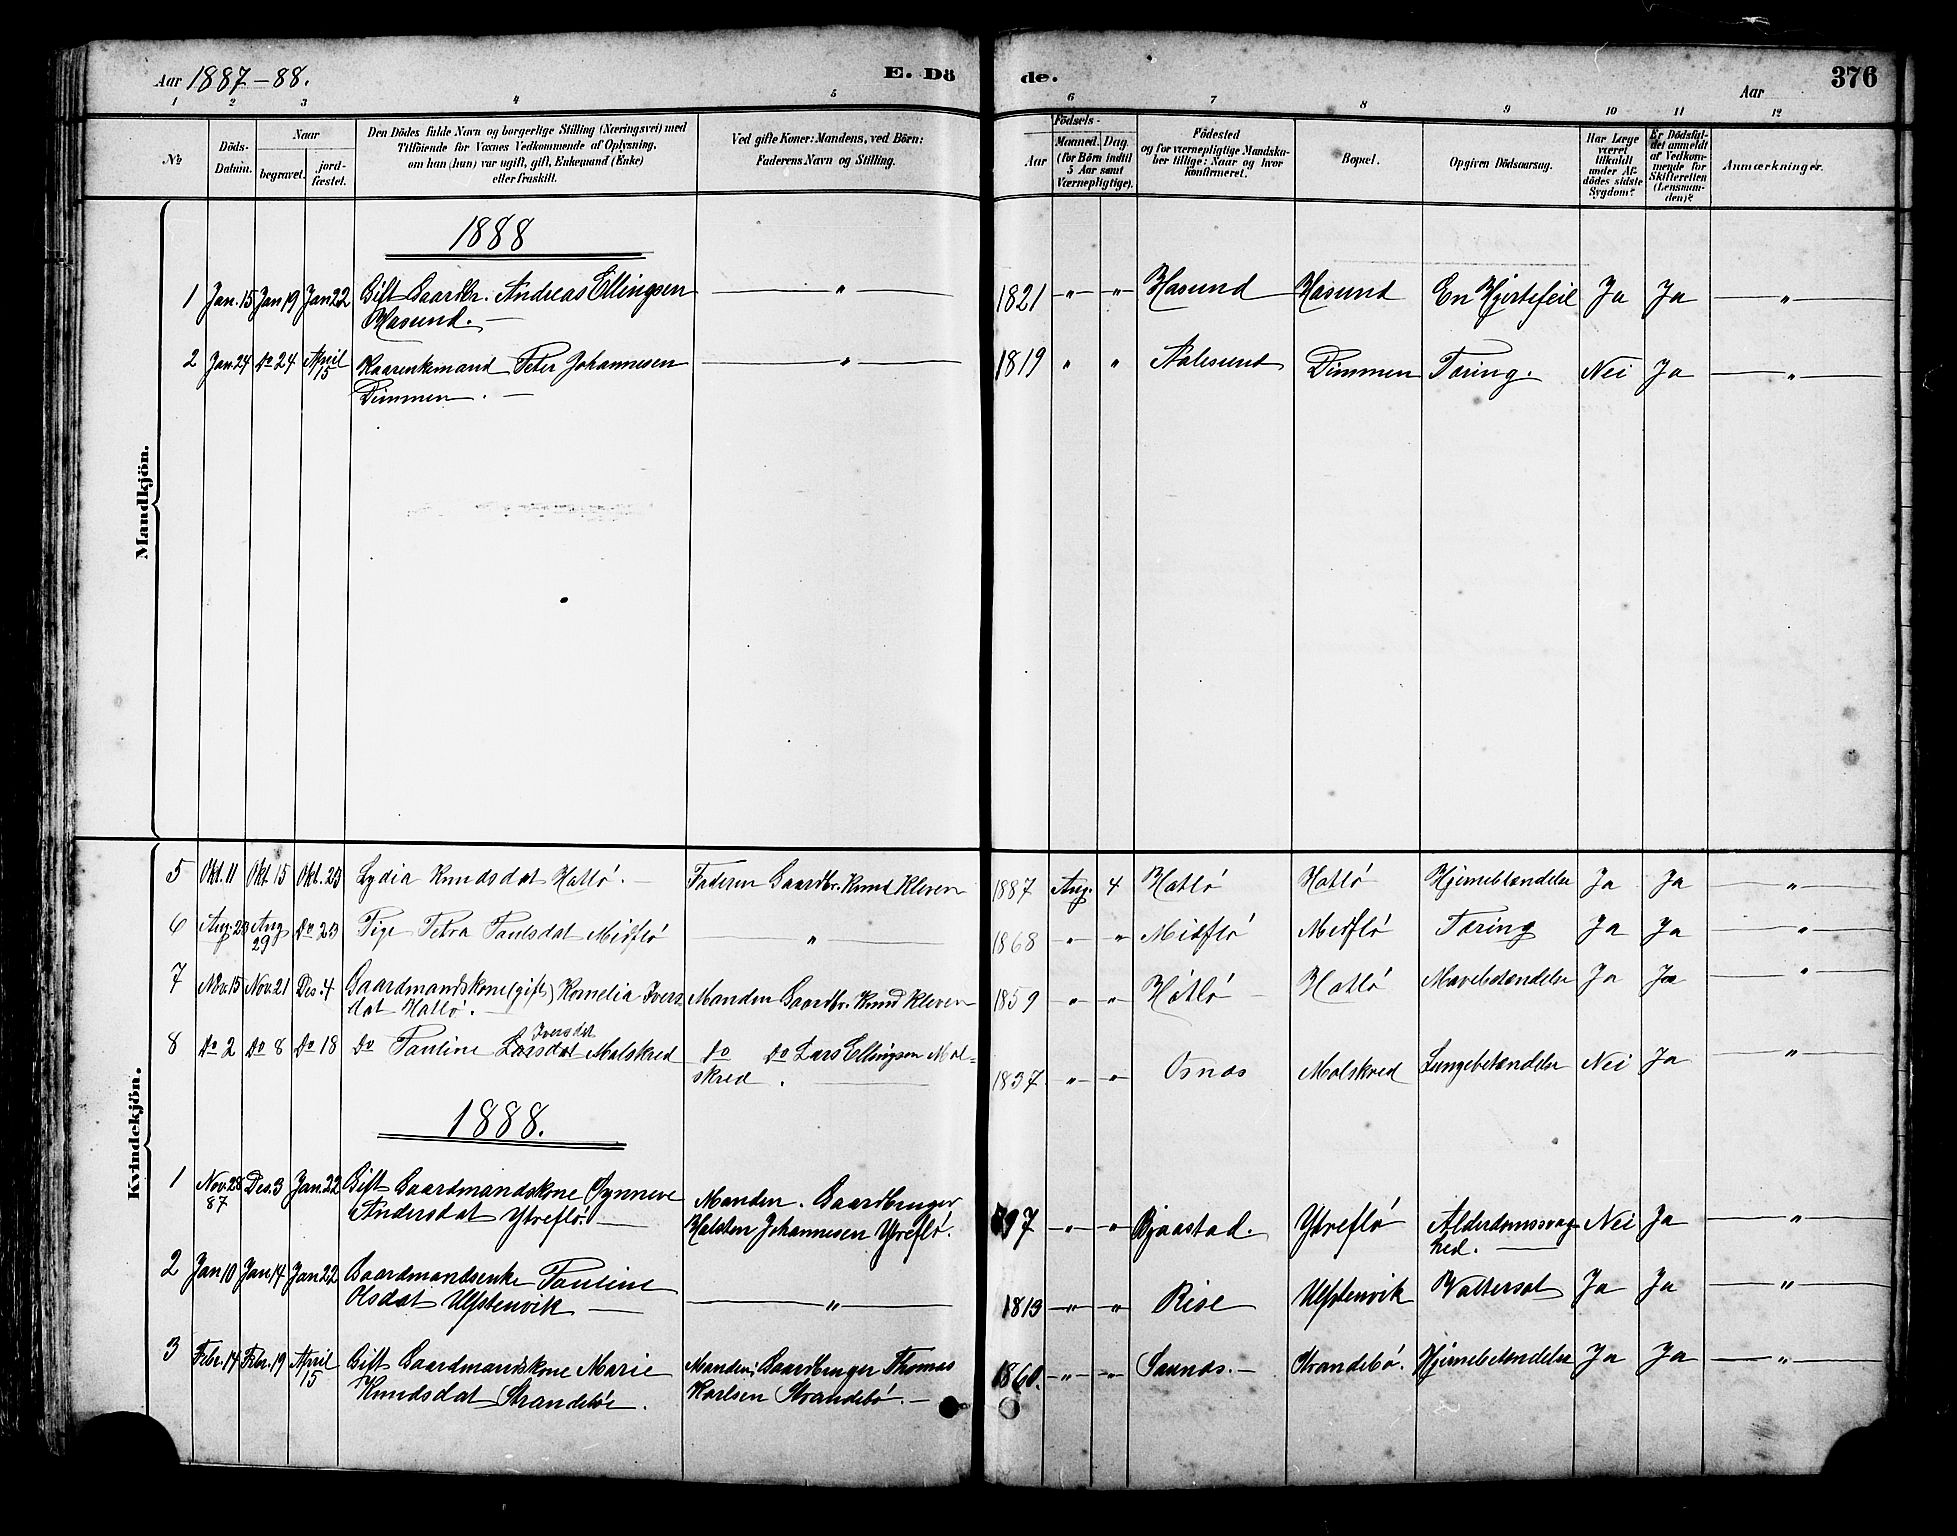 Aar 1887-88.
E. Dö
de.
Aar
376
1 2 3 4 5 6 7 8 9 10 11 12
№
Döds-
Datum.
Naar
begravet.
jord-
fæstet.
Den Dödes fulde Navn og borgerlige Stilling (Næringsvei) med
Tilföiende for Voxnes Vedkommende af Oplysning,
om han (hun) var ugift, gift, Enkemand (Enke)
eller fraskilt.
Ved gifte Koner: Mandens, ved Börn:
Faderens Navn og Stilling.
Födsels-
Aar
Maaned. Dag.
(for Börn indtil
5 Aar samt
Værnepligtige).
Födested
og for værnepligtige Mandska-
ber tillige: Naar og hvor
konfirmeret.
Bopæl.
Opgiven Dödsaarsag.
Har Læge
været
tilkaldt
under Af-
dödes sidste
Sygdom?
Er Dödsfal-
det anmeldt
af Vedkom-
mende for
Skifteretten
(Lensman-
den)?
Anmærkninger.
Mandkjön.
1888
1 Jan. 15 Jan 19 Jan 22 Gift Gaardbr. Andreas Ellingsen — „ — 1821 „ „ Hasund Hasund En Hjertefeil Ja Ja „
Hasund.
2 Jan. 24 Do 24 April 15 Kaarenkemand Peter Johannesen — „ — 1819 „ „ Aalesund Dimmen Tæring. Nei Ja „
Dimmen.
Kvindekjön.
5 Okt. 11 Okt 15 Okt. 23 Lydia Knudsdat Hatlö. Faderen Gaardbr. Knud Kleven 1887 Aug. 4 Hatlö Hatlö Hjernebtændelse Ja Ja „
6 Aug. 23 Aug 29 Do 23 Pige Petra Paulsdat Midflö „ 1868 „ „ Midflö Midflö Tæring Ja Ja „
7 Nov. 15 Nov. 21 Des. 4 Gaardmandskone (gift) Kornelia Ivers Manden Gaardbr. Knud Kleven 1859 „ „ Hatlö Hatlö Mavebetændelse Ja Ja „
dat Hatlö.
Iversdat
8 Do 2 Do 8 Do 18 Do Pauline Larsdat Molskred Do Do Lars Ellingsen Mol- 1837 „ „ Osnæs Molskred Lungebetændelse Nei Ja „
skred.
1888.
1 Nov. 28 87 Des. 3 Jan. 22 Gift Gaardmandskone Synneve Manden. Gaardbruger 797 „ „ Bjaastad. Ytreflö Alderdomssvag- Nei Ja „
Andersdat Ytreflö. Halsten Johannesen Ytreflö. hed.
2 Jan 10 Jan. 14 Jan 22 Gaardmandsenke Pauline — „ — 1813 „ „ Rise Ulfstenvik Vattersot Ja Ja „
Olsdat Ulfstenvik
3 Febr. 14 Febr. 19 April 15 Gift Gaardmandskone Marie Manden: Gaardbruger Thomas 1860. „ „ Saunæs. Strandebö. Hjernebetændelse Ja Ja „
Knudsdat Strandebö. Karlsen Strandebö.